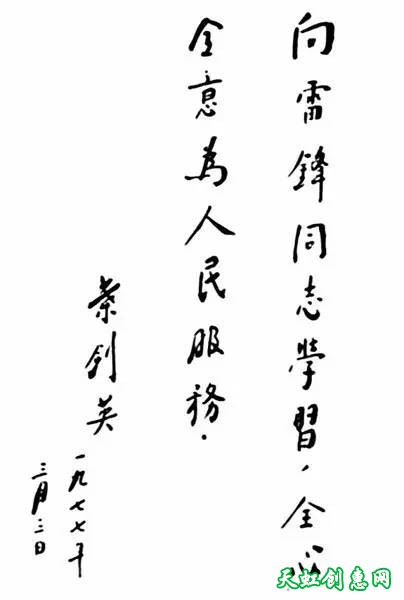 向雷鋒同志學習，全心
全意為人民服務.
葉剑英
一九七七年
三月三日
天虹创意网